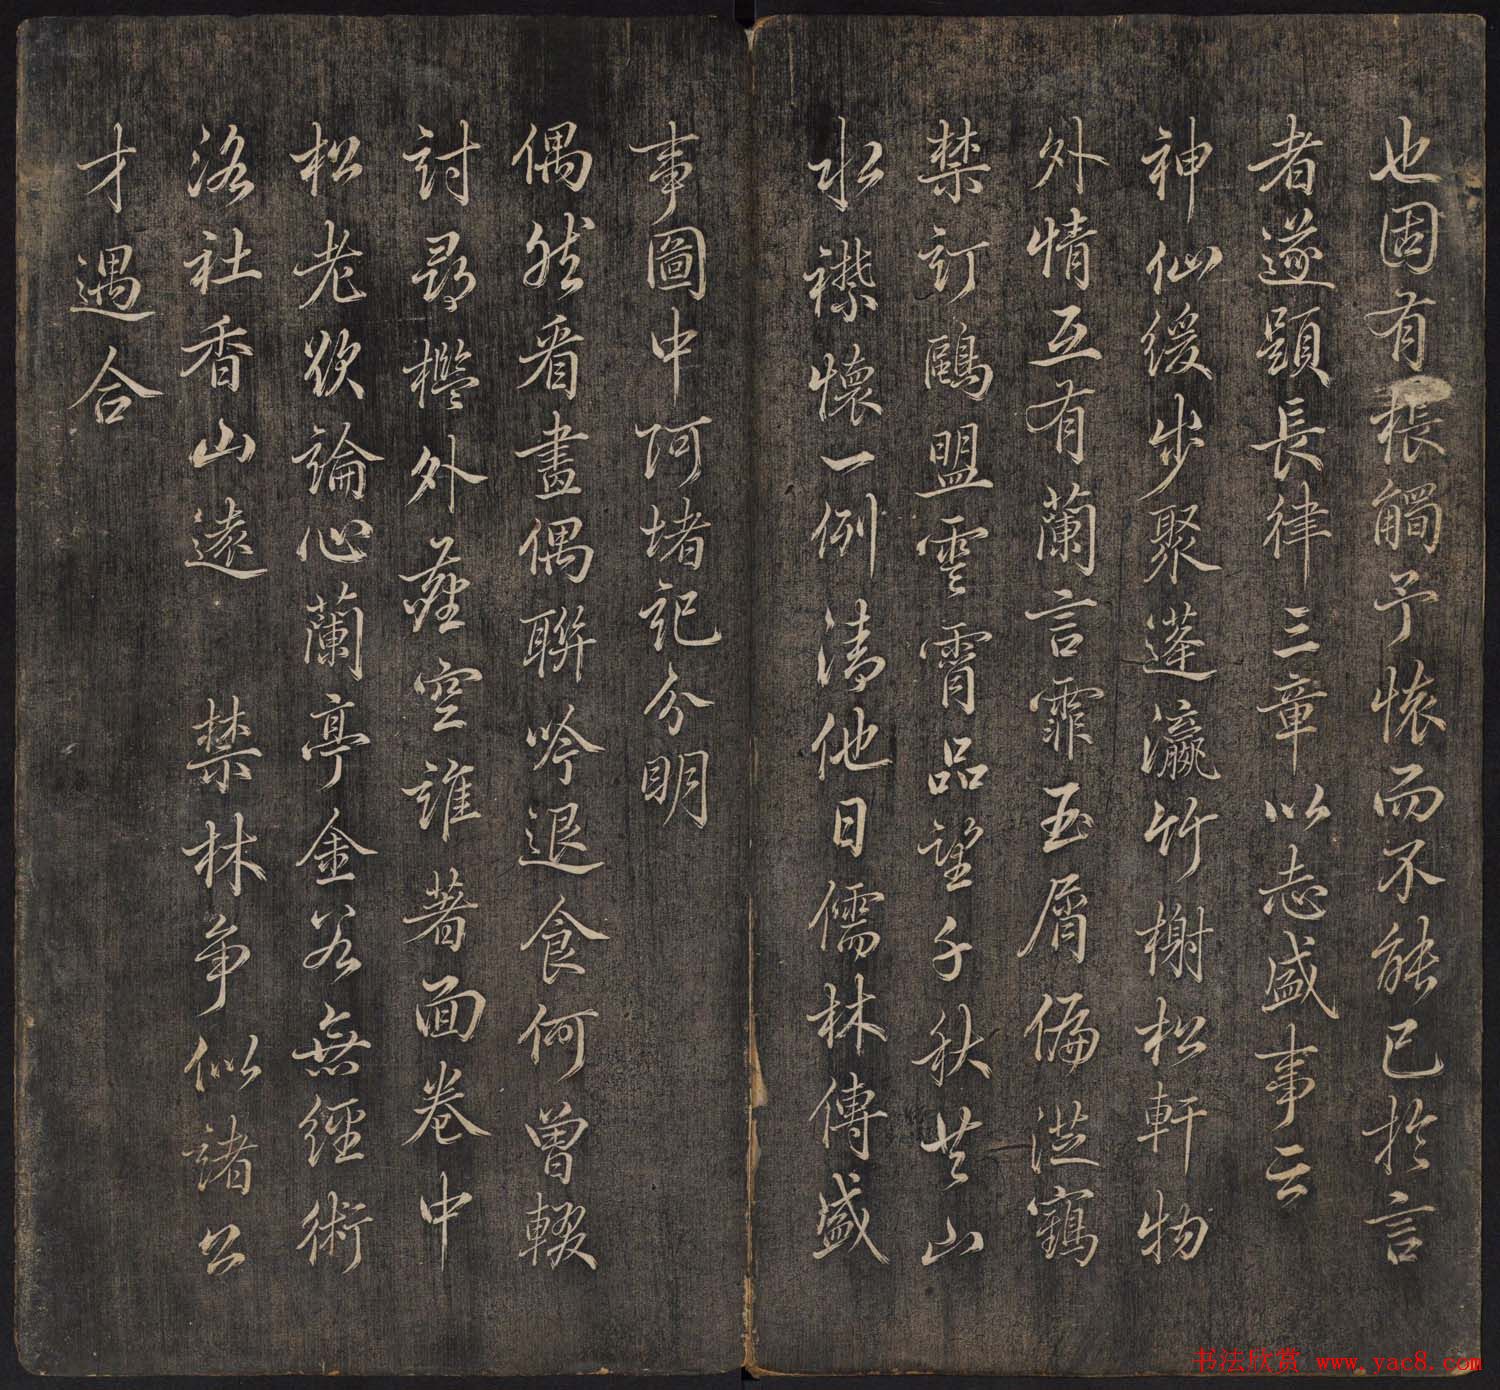 也因有棖觸予懷而不能已於言
者遂題長律三章以志盛事云
神仙緩步聚蓬瀛竹榭松軒物
外情互有蘭言霏玉屑偏從鶴
禁訂鷗盟雲霄品望千秋共山
水襟懷一例清他日儒林傳盛
事圖中阿堵記分明
偶然看畫偶聯吟退食何曾輟
討尋檻外蘿空誰著面卷中
松老欲論心蘭亭金谷無經術
洛社香山遠禁林爭似諸公
才遇合
书法欣赏 www.yac8.com